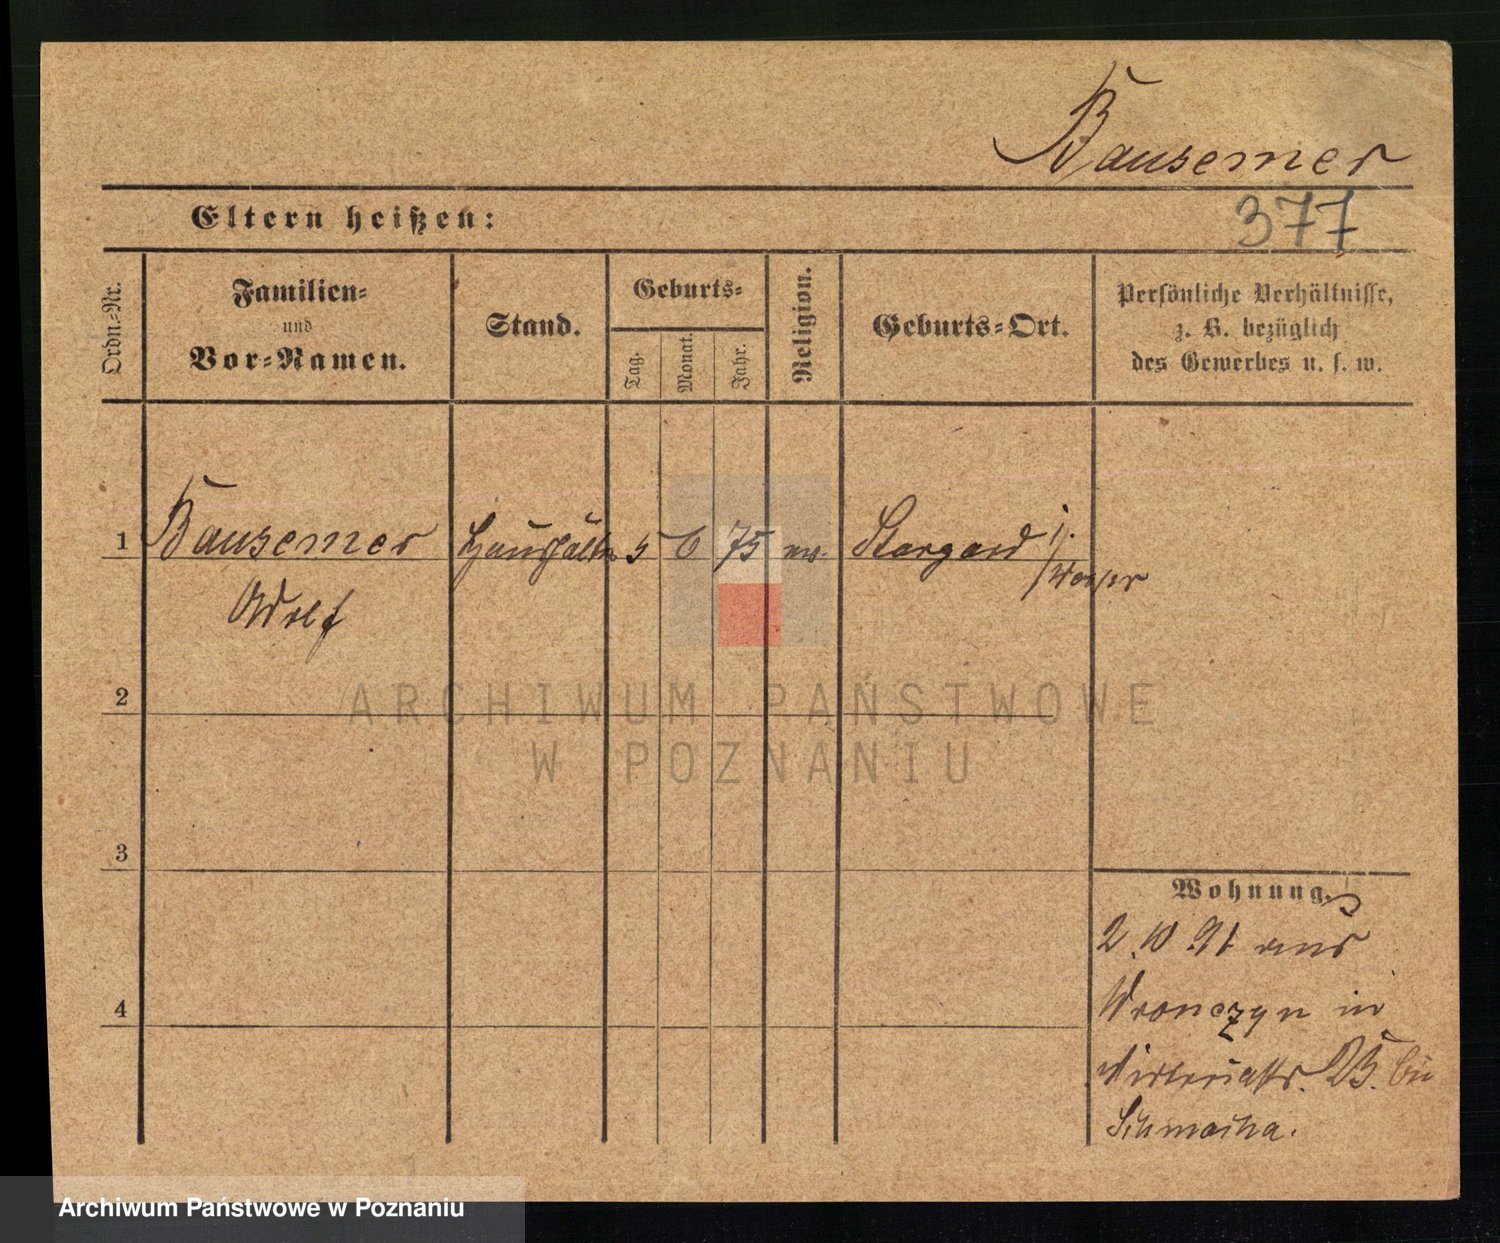 Bausemer
Eltern heißen:
377
Ordn.-Nr.
Familien-
und
Vor-Namen.
Stand.
Geburts-
Tag.
Monat.
Jahr.
Religion.
Geburts-Ort.
Persönliche Verhältnisse,
z. B. bezüglich
des Gewerbes u. s. w.
1 Bausemer 5 6 75 Stargard i.
Adolf
2
ARCHIWUM PAŃSTWOWE
W POZNANIU
3
Wohnung.
2. 10 91 aus
Wronczyn in
25. bei
4
Archiwum Państwowe w Poznaniu